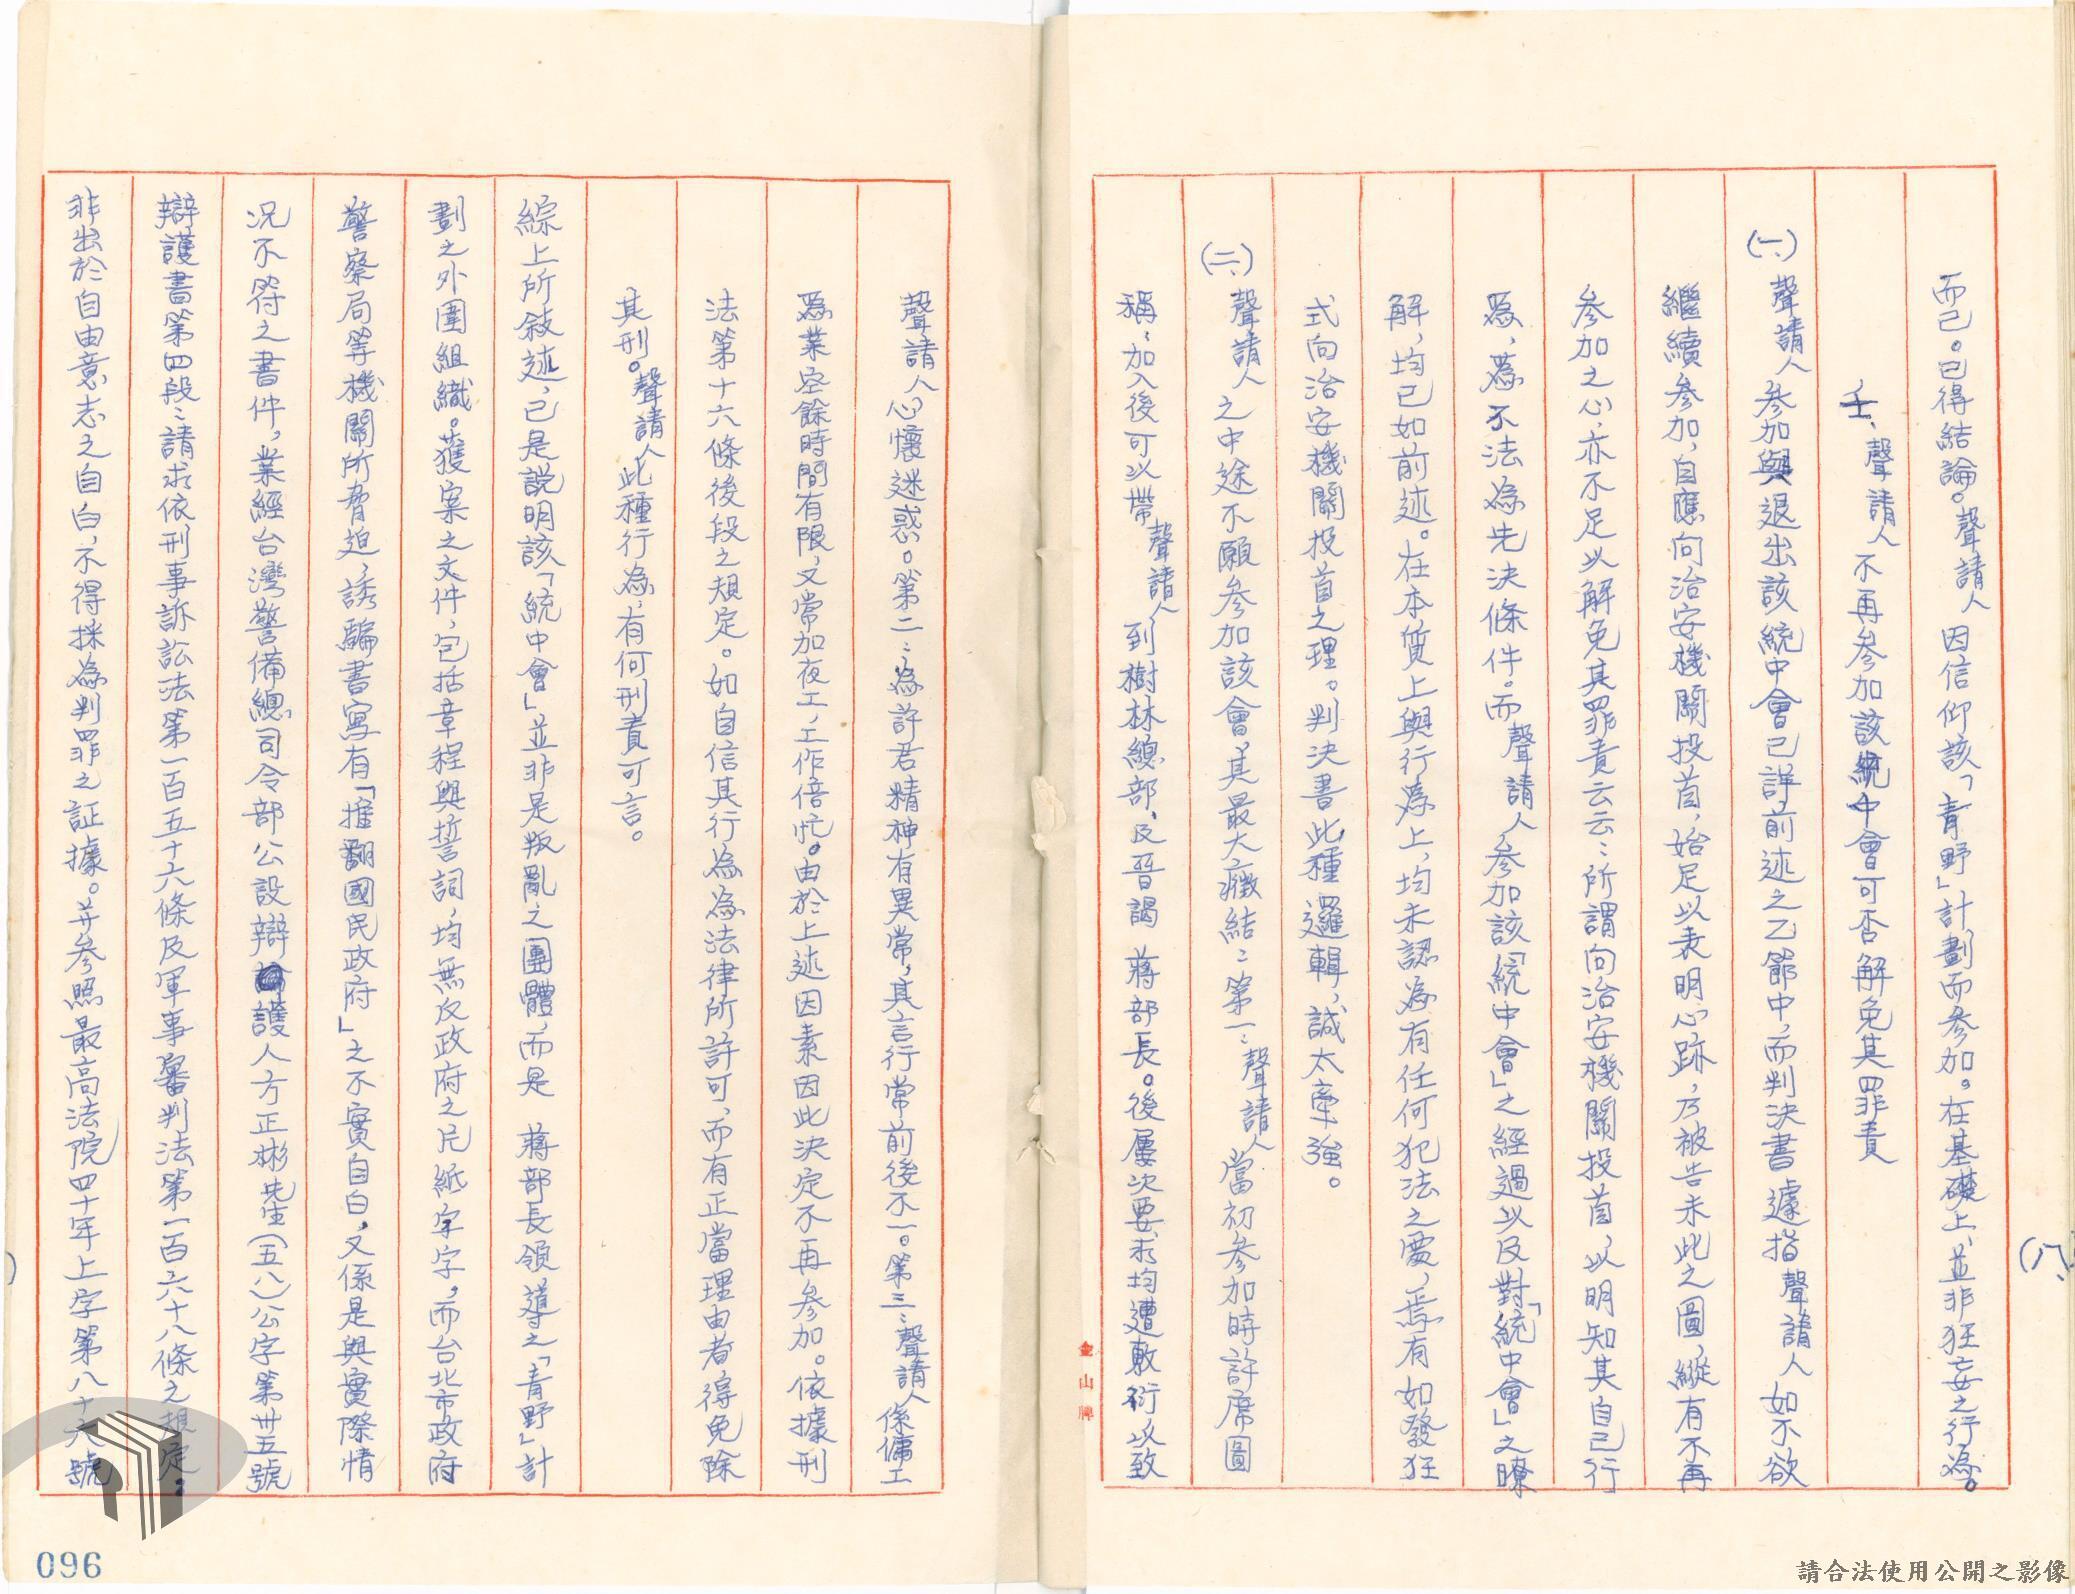 而已。已得結論。聲請人因信仰該「青野」計劃而參加。在基礎上、並非狂妄之行為。
壬、聲請人不再參加該統中會可否解免其罪責
(一)、聲請人參加與退出該統中會已詳前述之乙節中，而判決書遽指聲請人如不欲
繼續參加，自應向治安機關投首，始足以表明心跡，乃被告未此之圖，縱有不再
參加之心，亦不足以解免其罪責云云：所謂向治安機關投首，以明知其自己行
為，為不法為先決條件。而聲請人參加該「統中會」之經過以及對「統中會」之瞭
解，均已如前述。在本質上與行為上，均未認為有任何犯法之處，焉有如發狂
式向治安機關投首之理。判決書此種邏輯，誠太牽強。
(二)、聲請人之中途不願參加該會，其最大癥結：第一：聲請人當初參加時許席圖
稱：加入後可以帶聲請人到樹林總部，及晉謁 蔣部長。後屢次要求均遭敷衍以致
(八)、
聲請人心懷迷惑。第二：為許君精神有異常，其言行常前後不一。第三：聲請人係傭工
為業空餘時間有限，又常加夜工，工作倍忙。由於上述因素因此決定不再參加。依據刑
法第十六條後段之規定。如自信其行為為法律所許可，而有正當理由者得免除
其刑。聲請人此種行為，有何刑責可言。
綜上所敘述，已是說明該「統中會」並非是叛亂之團體，而是 蔣部長領導之「青野」計
劃之外圍組織。獲案之文件，包括章程與誓詞，均無反政府之片紙字字。而台北市政府
警察局等機關所脅迫，誘騙書寫有「推翻國民政府」之不實自白，又係是與實際情
況不符之書件，業經台灣警備總司令部公設辯護人方正彬先生(五八)公字第卅五號
辯護書第四段：請求依刑事訴訟法第一百五十六條及軍事審判法第一百六十八條之規定：
非出於自由意志之自白，不得採為判罪之証據。并參照最高法院四十年上字第八十六號
金山牌
096
請合法使用公開之影像